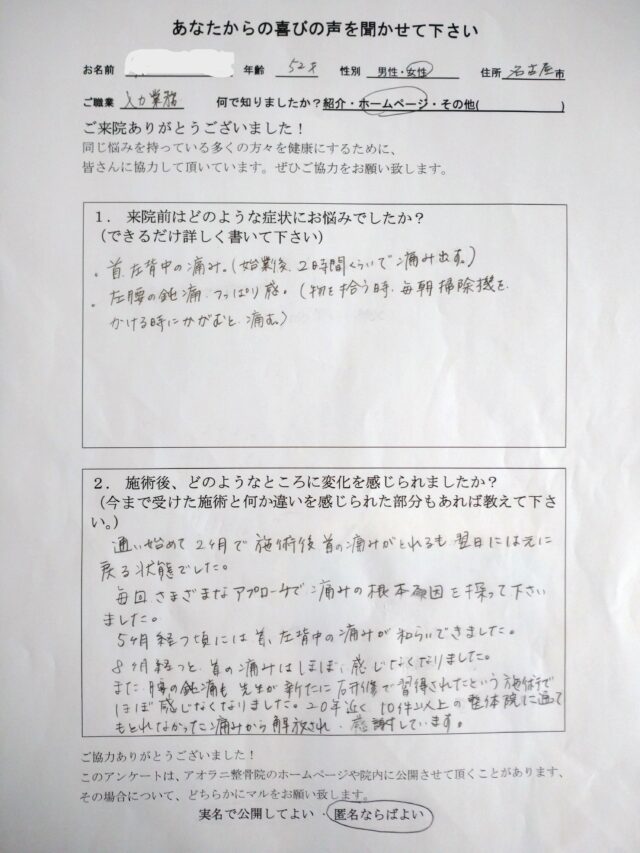 あなたからの喜びの声を聞かせて下さい
お名前 年齢 52才 性別 男性・女性 住所 名古屋市
ご職業 入力業務 何で知りましたか?紹介・ホームページ・その他( )
ご来院ありがとうございました!
同じ悩みを持っている多くの方々を健康にするために、
皆さんに協力して頂いています。ぜひご協力をお願い致します。
1. 来院前はどのような症状にお悩みでしたか?
(できるだけ詳しく書いて下さい)
・首、左背中の痛み。(始業後、2時間くらいで痛み出す。)
・左腰の鈍痛、つっぱり感。(物を拾う時、毎朝掃除機を
かける時にかがむと、痛む。)
2. 施術後、どのようなところに変化を感じられましたか?
(今まで受けた施術と何か違いを感じられた部分もあれば教えて下さ
い。)
通い始めて2ヶ月で施術後首の痛みがとれるも翌日には元に
戻る状態でした。
毎回さまざまなアプローチで痛みの根本原因を探って下さい
ました。
5ヶ月経つ頃には首、左背中の痛みが和らいできました。
8ヶ月経つと、首の痛みはほぼ、感じなくなりました。
また、腰の鈍痛も先生が新たに研修で習得されたという施術で
ほぼ感じなくなりました。20年近く、10件以上の整体院に通って
もとれなかった痛みから解放され、感謝しています。
ご協力ありがとうございました!
このアンケートは、アオラニ整骨院のホームページや院内に公開させて頂くことがあります、
その場合について、どちらかにマルをお願い致します。
実名で公開してよい ・ 匿名ならばよい